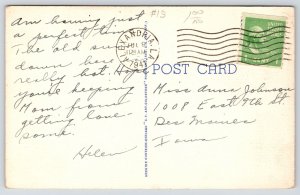 Am having just
a perfect time.
The old sun
down here is
really hot. Hope
you're keeping
Mom from
getting lone-
some.
Helen
#13
ALEXANDRIA, LA.
JUL
1941
POST CARD
Miss Anna Johnson
1008 East 9th St
Des Moines
Iowa